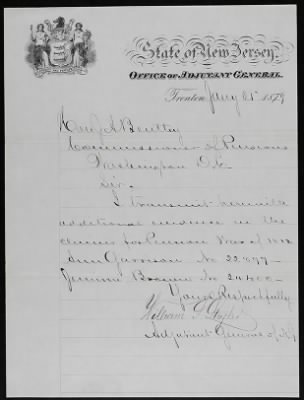 State of New Jersey.
OFFICE OF ADJUTANT GENERAL.
Trenton, Jany 21st 1879
Hon J A Bentley
Commissioner of Pensions
Washington D.C.
Sir.
I transmit herewith
additional evidence in the
claims for Pension War of 1812
Ann Garrison No 22.697
Jemima No
Yours Respectfully
William S. Stryker
Adjutant General of N.J.